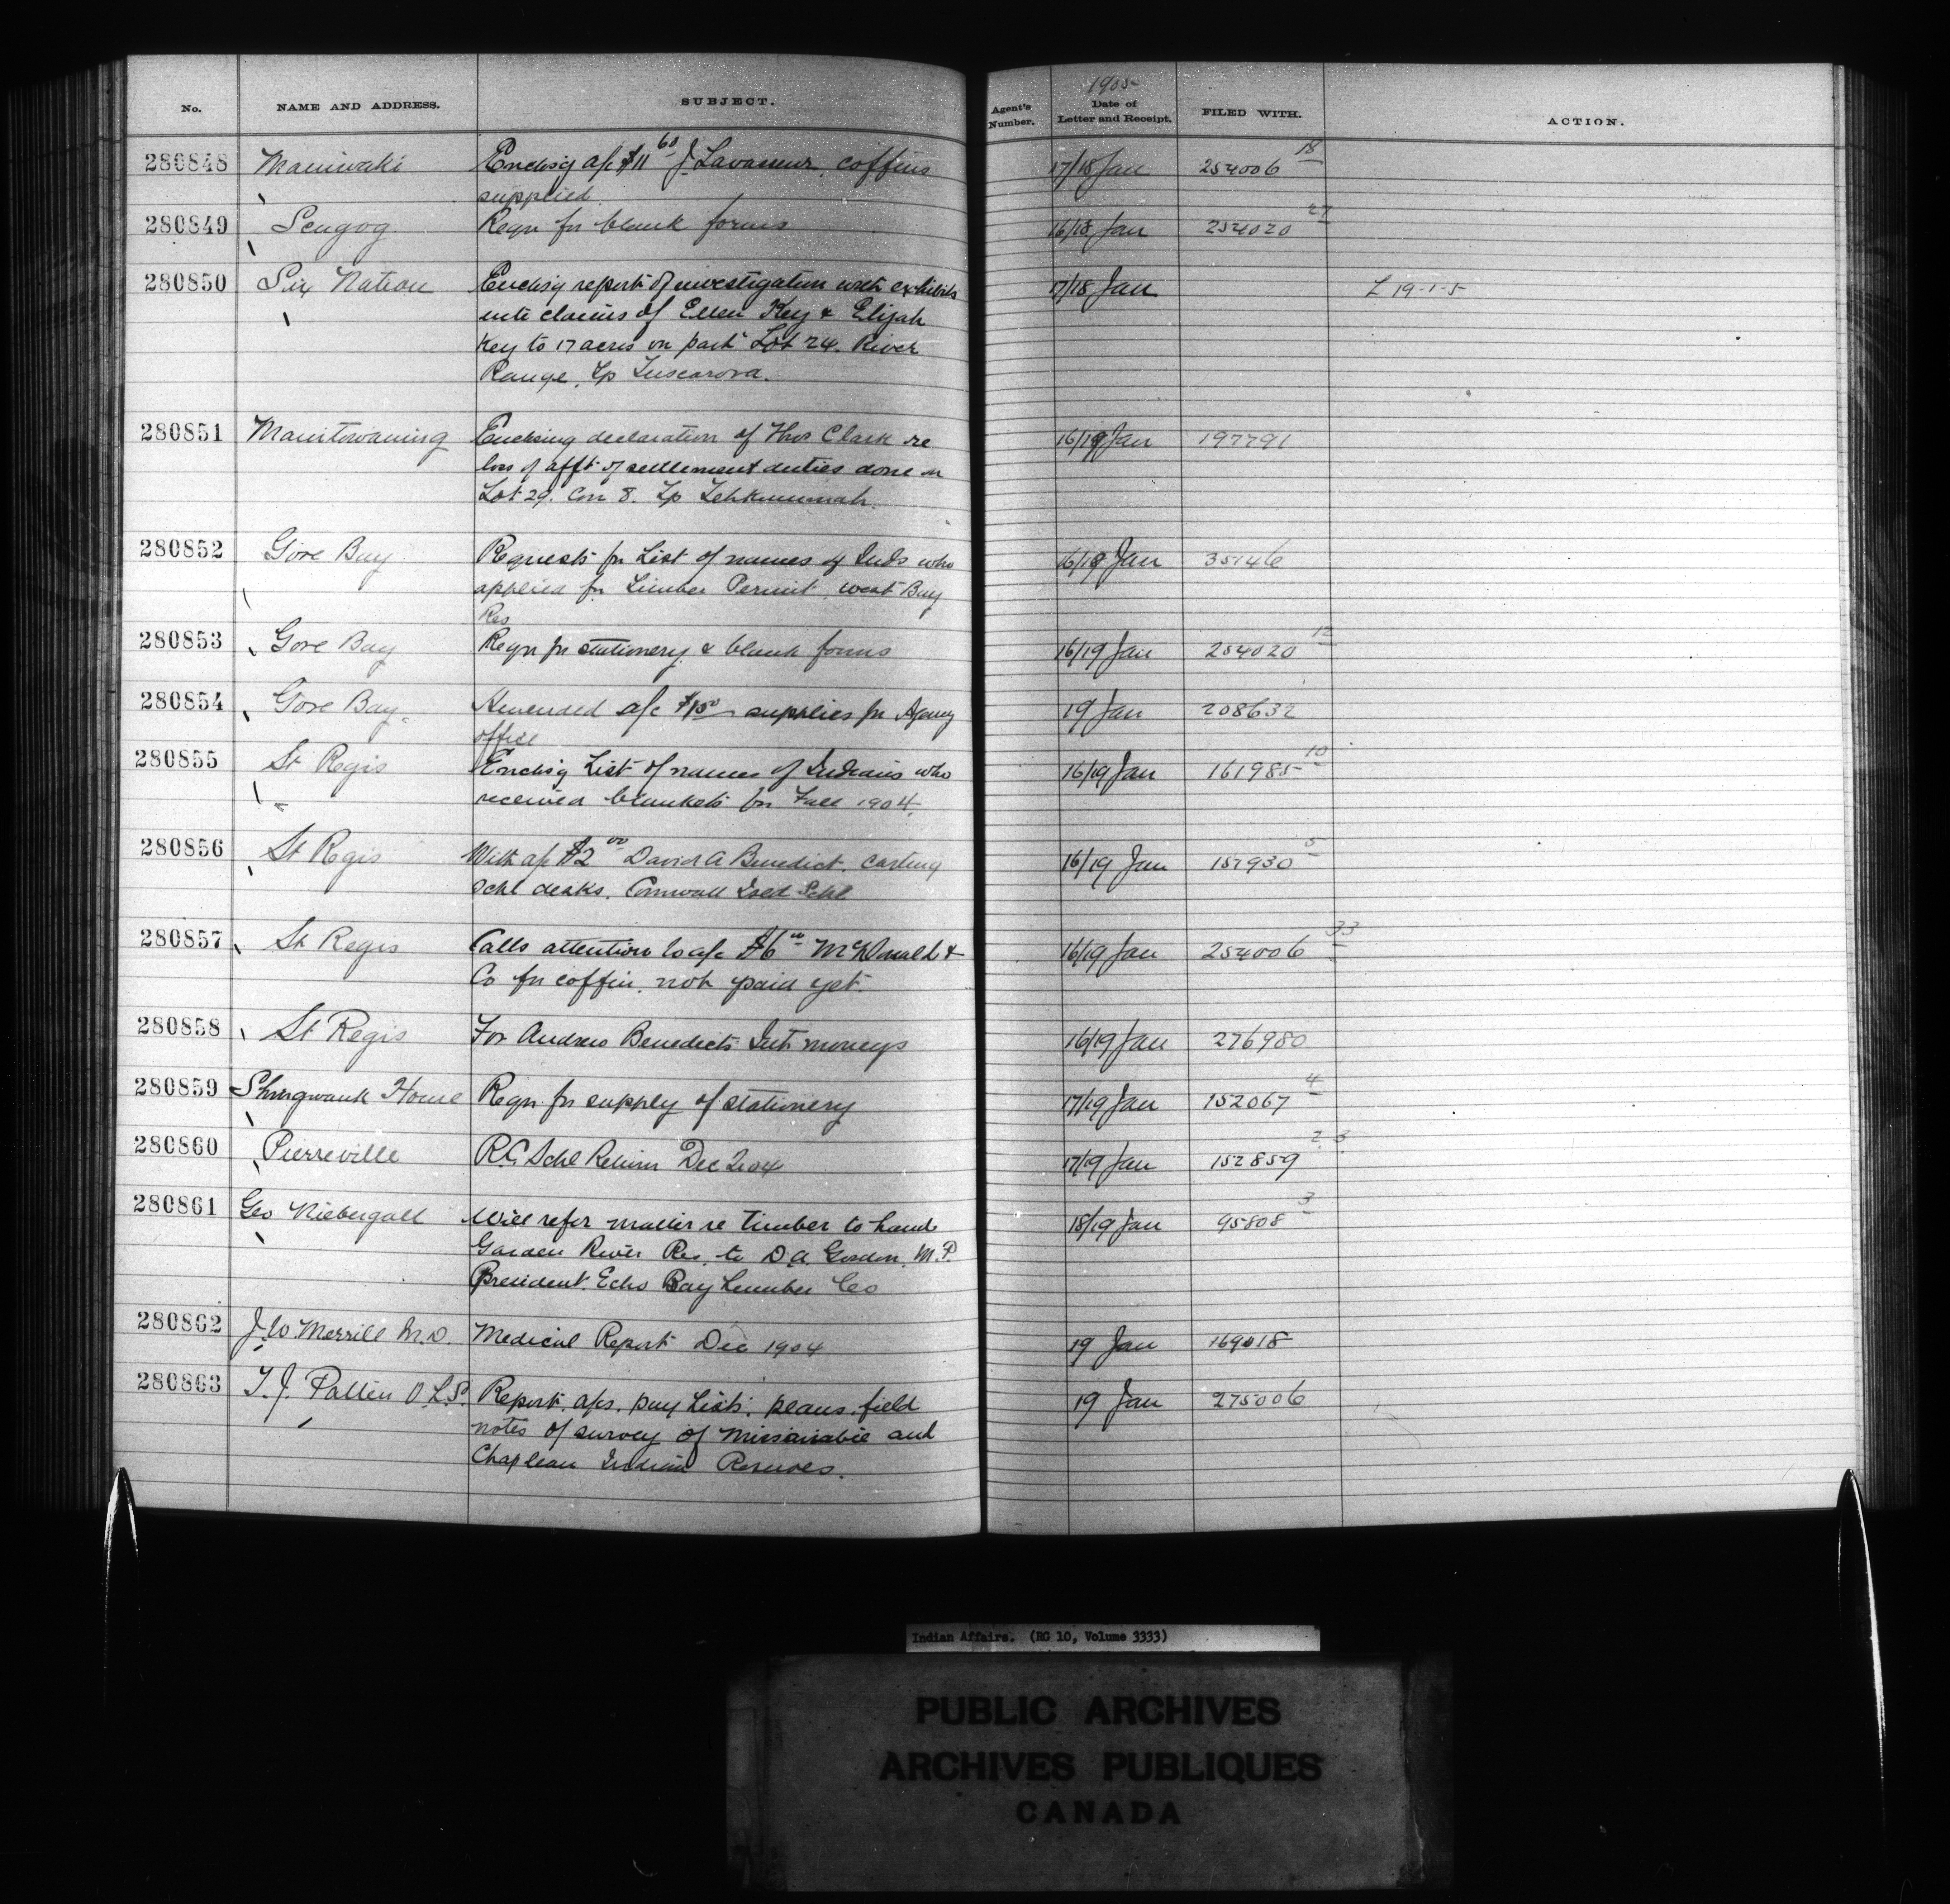 No. NAME AND ADDRESS. SUBJECT. Agent's Number. 1905 Date of Letter and Receipt. FILED WITH. ACTION.
280848 Maniwaki Enclosg a/c $11 60 J. Lavasseur, coffins 17/18 Jan 254006 18
supplied
280849 Scugog Reqn for blank forms 16/18 Jan 254020 27
280850 Six Nation Enclosg report of investigation with exhibits 17/18 Jan L 19-1-5
into claims of Ellen Key & Elijah
Key to 17 acres on part Lot 24. River
Range, Tp Tuscarora.
280851 Manitowaning Enclosing declaration of Thos Clark re 16/19 Jan 197791
loss of afft of settlement duties done on
Lot 29. Con 8. Tp Tehkummah.
280852 Gore Bay Requests for List of names of Inds who 16/19 Jan 35146
applied for Timber Permit, West Bay
Res
280853 Gore Bay Reqn for stationery & blank forms 16/19 Jan 254020 12
280854 Gore Bay Amended a/c supplies for Agency 19 Jan 208632
office
280855 St Regis Enclosg List of names of Indians who 16/19 Jan 161985 10
received blankets for Fall 1904
280856 St Regis With a/c $2 00 David A Benedict, carting 16/19 Jan 157930 5
Schl desks, Cornwall Isld Schl
280857 St Regis Calls attention to a/c $6 00 McDonald & 16/19 Jan 254006 33
Co for coffin, not paid yet.
280858 St Regis For Andrew Benedicts Int moneys 16/19 Jan 276980
280859 Shingwauk Home Reqn for supply of stationery 17/19 Jan 152067 4
280860 Pierreville R.C. Schl Return Dec 2.04 17/19 Jan 152859 2.3
280861 Geo Niebergall Will refer matter re Timber to hand 18/19 Jan 95808 3
Garden River Res, to D.A. Gordon, M.P.
President, Echo Bay Lumber Co
280862 J.W. Merrill M.D. Medical Report Dec 1904 19 Jan 169018
280863 T.J. Patten O.L.S. Report, a/cs, pay Lists, plans, field 19 Jan 275006
notes of survey of Missanabie and
Chapleau Indian Reserves.
Indian Affairs. (RG 10, Volume 3333)
PUBLIC ARCHIVES
ARCHIVES PUBLIQUES
CANADA